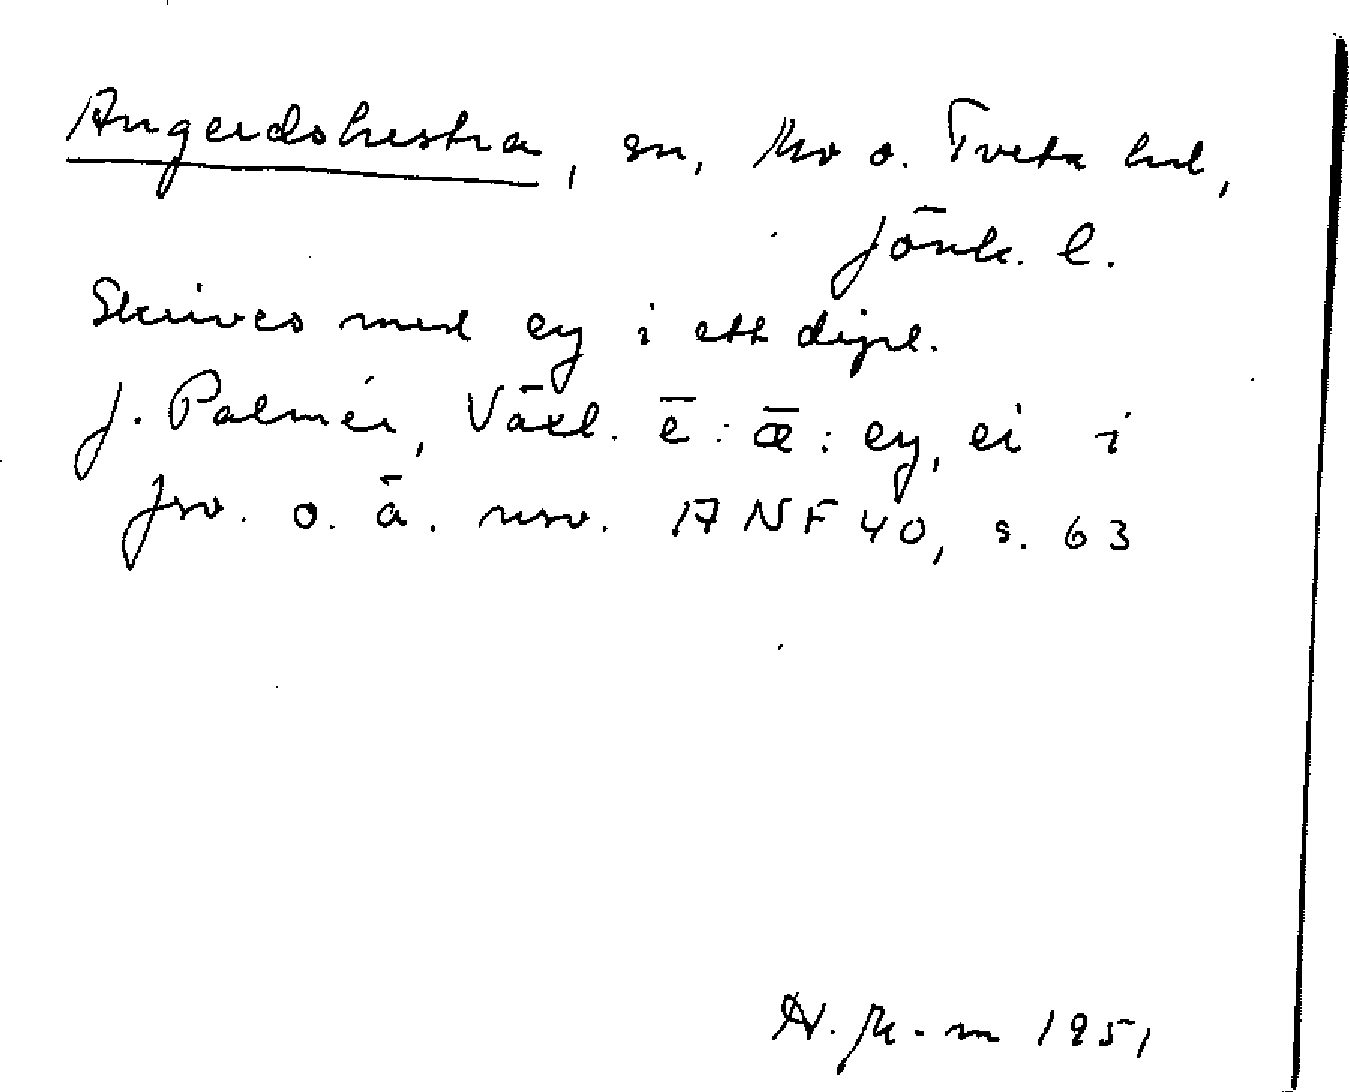 Angerdshestra, sn, Mo o. Tveta hd,
Jönk. l.
Skrives med ey i ett dipl.
J. Palmér, Växl. ē : ǣ : ey, ei i
fsv. o. ä. nsv. i ANF 40, s. 63
1951